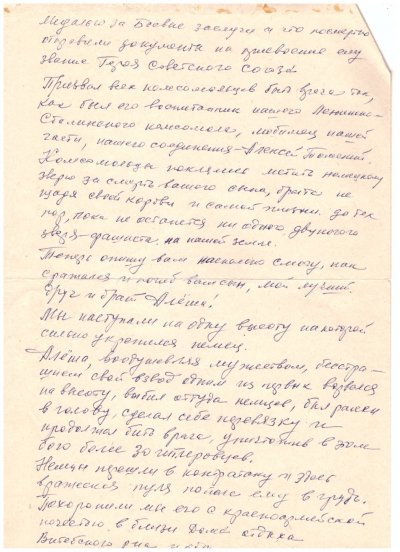 медалью за Боевые заслуги и что посмертно
отправили документы на присвоение ему
звание Героя Советского Союза.
Призвал всех комсомольцев бить врага так,
как бил его воспитанник нашего Ленинско-
Сталинского комсомола, любимец нашей
части, нашего соединения – Алексей
Комсомольцы поклялись мстить немецкому
зверю за смерть вашего сына, брата не
щадя своей крови и самой жизни. до тех
пор, пока не останется ни одного двуногого
зверя-фашиста, на нашей земле.
Теперь опишу вам насколько смогу, как
сражался и погиб ваш сын, мой лучший
друг и брат Алёша!
Мы наступали на одну высоту на которой
сильно укрепился немец.
Алёша, воодушевляя мужеством, бесстра-
шием свой взвод одним из первых ворвался
на высоту, выбил оттуда немцев, был ранен
в голову, сделал себе перевязку и
продолжал бить врага, уничтожив в этом
бою более 30 гитлеровцев.
Немцы перешли в контратаку и здесь
вражеская пуля попала ему в грудь.
Похоронили мы его с красноармейской
почестью в близи Дома отдыха
Витебского